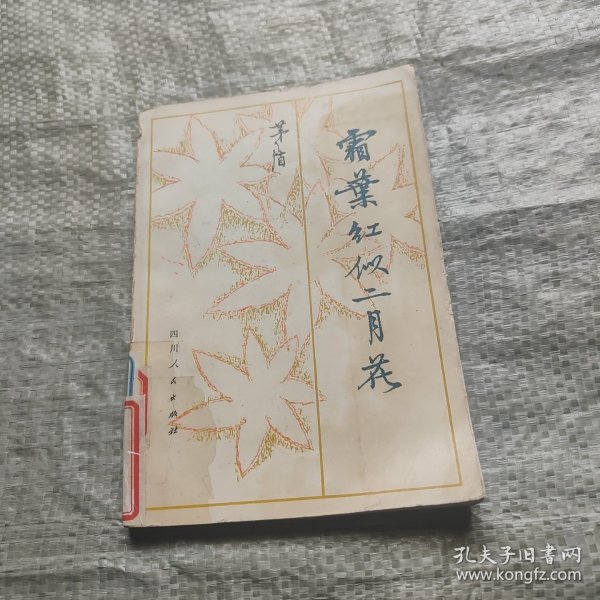 霜葉红似二月花
茅盾
四川人民出版社
孔夫子旧书网
www.kongfz.com